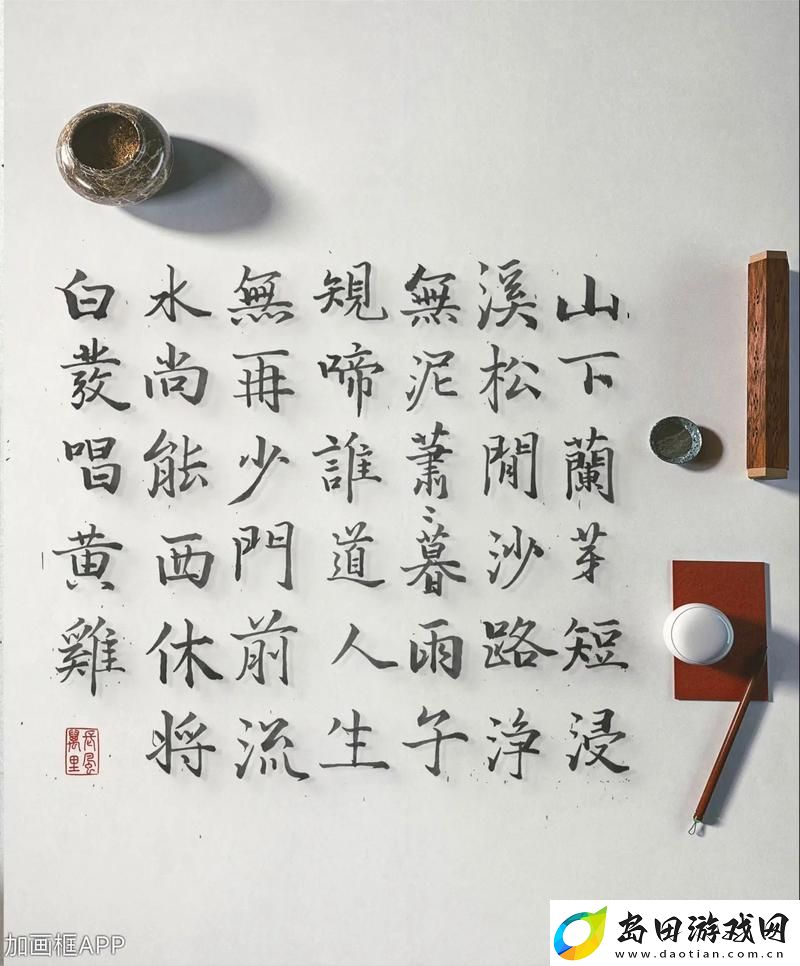 山下蘭芽短浸
溪松閒沙路浄
無泥蕭〻暮雨子
規啼誰道人生
無再少門前流
水尚能西休将
白發唱黄雞
長風萬里
加画框APP
岛田游戏网
www.daotian.com.cn